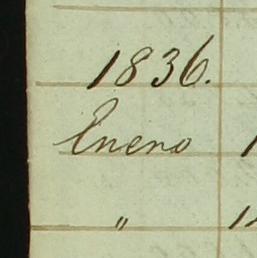 1836.
Enero
"